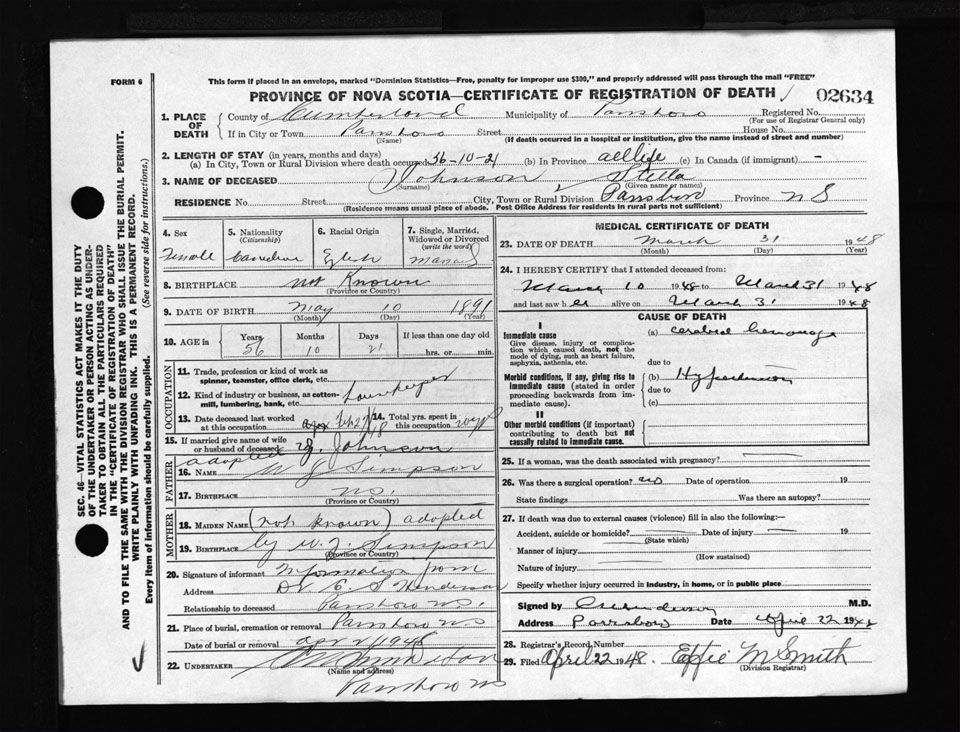 FORM 6
This form if placed in an envelope, marked "Dominion Statistics—Free, penalty for improper use $300," and properly addressed will pass through the mail "FREE"
PROVINCE OF NOVA SCOTIA—CERTIFICATE OF REGISTRATION OF DEATH
02634
1. PLACE OF DEATH
County of Cumberland Municipality of Parrsboro Registered No.
(For use of Registrar General only)
If in City or Town Parrsboro Street House No.
(Name) (If death occurred in a hospital or institution, give the name instead of street and number)
2. LENGTH OF STAY (in years, months and days)
(a) In City, Town or Rural Division where death occurred 56-10-21 (b) In Province all life (c) In Canada (if immigrant) -
3. NAME OF DECEASED Johnson Stella
(Surname) (Given name or names)
RESIDENCE No. Street City, Town or Rural Division Parrsboro Province N S
(Residence means usual place of abode. Post Office Address for residents in rural parts not sufficient)
4. Sex
Female
5. Nationality
(Citizenship)
Canadian
6. Racial Origin
English
7. Single, Married, Widowed or Divorced
(write the word)
Married
8. BIRTHPLACE not Known
(Province or Country)
9. DATE OF BIRTH May 10 1891
(Month) (Day) (Year)
10. AGE in
Years Months Days If less than one day old
56 10 21 hrs. or min.
OCCUPATION
11. Trade, profession or kind of work as spinner, teamster, office clerk, etc.
12. Kind of industry or business, as cotton-mill, lumbering, bank, etc.
Housekeeper
13. Date deceased last worked at this occupation
14. Total yrs. spent in this occupation
15. If married give name of wife or husband of deceased Johnson
FATHER
adopted
16. NAME W J Simpson
17. BIRTHPLACE N.S.
(Province or Country)
MOTHER
18. MAIDEN NAME (not known) adopted
19. BIRTHPLACE by W. J. Simpson
(Province or Country)
20. Signature of informant Information from
Address Dr. E. S. Henderson
Relationship to deceased Parrsboro N.S.
21. Place of burial, cremation or removal Parrsboro N S
Date of burial or removal Apr 2/1948
22. UNDERTAKER
(Name and address)
Parrsboro NS
MEDICAL CERTIFICATE OF DEATH
23. DATE OF DEATH March 31 1948
(Month) (Day) (Year)
24. I HEREBY CERTIFY that I attended deceased from:
March 10 1948 to March 31 1948
and last saw her alive on March 31 1948
CAUSE OF DEATH
I
Immediate cause
Give disease, injury or complication which caused death, not the mode of dying, such as heart failure, asphyxia, asthenia, etc.
(a) cerebral hemorrhage
due to
Morbid conditions, if any, giving rise to immediate cause (stated in order proceeding backwards from immediate cause).
(b) Hypertension
due to
(c)
II
Other morbid conditions (if important) contributing to death but not causally related to immediate cause.
25. If a woman, was the death associated with pregnancy?
26. Was there a surgical operation? no Date of operation 19
State findings Was there an autopsy?
27. If death was due to external causes (violence) fill in also the following:—
Accident, suicide or homicide? Date of injury 19
(State which)
Manner of injury
(How sustained)
Nature of injury
Specify whether injury occurred in industry, in home, or in public place
Signed by Henderson M.D.
Address Parrsboro Date April 22 1948
28. Registrar's Record Number
29. Filed April 22 1948. Effie M Smith
(Division Registrar)
SEC. 46—VITAL STATISTICS ACT MAKES IT THE DUTY
OF THE UNDERTAKER OR PERSON ACTING AS UNDER-
TAKER TO OBTAIN ALL THE PARTICULARS REQUIRED
IN THE "CERTIFICATE OF REGISTRATION OF DEATH"
AND TO FILE THE SAME WITH THE DIVISION REGISTRAR WHO SHALL ISSUE THE BURIAL PERMIT.
WRITE PLAINLY WITH UNFADING INK. THIS IS A PERMANENT RECORD.
Every item of information should be carefully supplied. (See reverse side for instructions.)